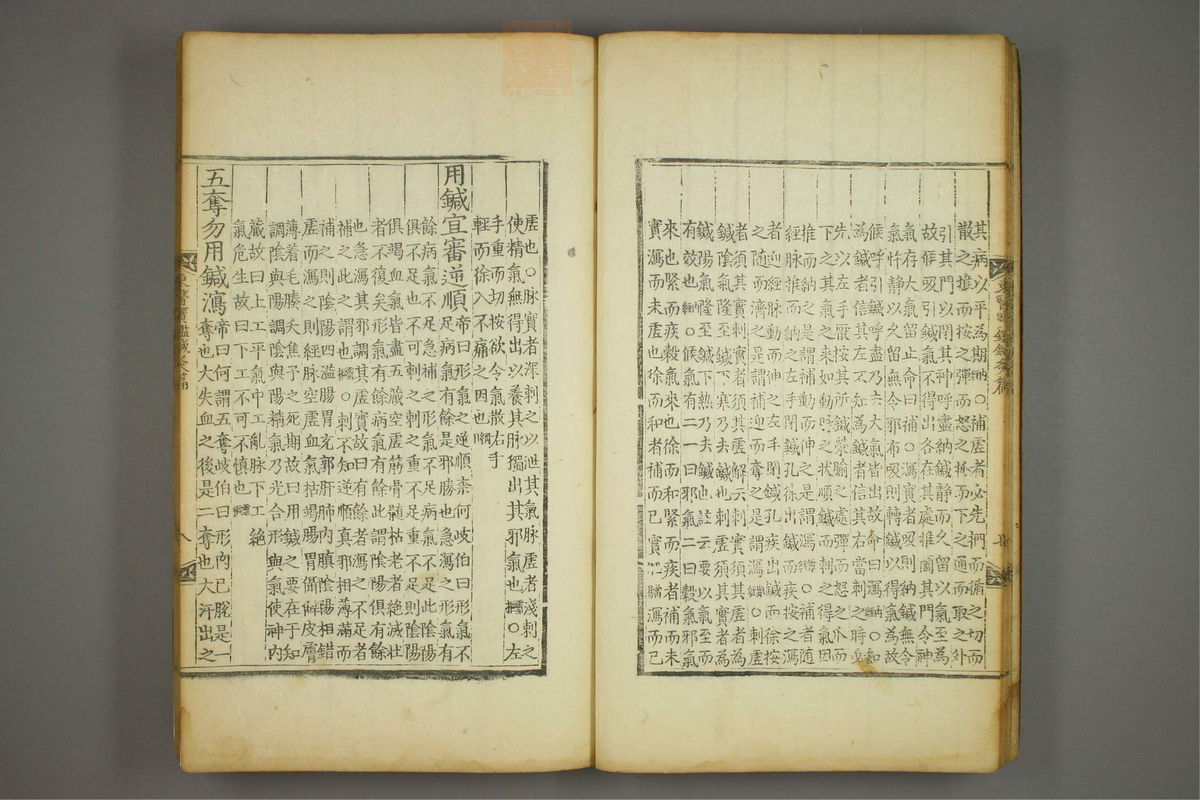 其病以平為期
○補虛者必先捫而循之切而
散之推而按之彈而怒之抓而下之通而取之外
引其門以閉其神呼盡納鍼靜而久留以氣至為
故候吸引鍼氣不得出各在其處推闔其門令神
氣存大氣留止命曰補○瀉實者吸則納鍼無令
氣忤靜以久留無令邪布吸則轉鍼以得氣為故
候呼引鍼呼盡乃去大氣皆出故命曰瀉○知
為鍼者信其左不知為鍼者信其右當刺之時
先以左手厭按其所鍼滎腧之處彈而怒之爪而
下之其氣之來如動脉之狀順鍼而刺之得氣因
推而納之是謂補動而伸之是謂瀉○補者隨
經脉推而納之左手閉鍼孔徐出鍼而疾按之瀉
者迎經脉動而伸之左手開鍼孔疾出鍼而徐按
之隨而濟之是謂補迎而奪之是謂瀉○刺虛
者須其實刺實者須其虛解云刺實須其虛者為
鍼陰氣隆至鍼下寒乃去鍼也刺虛須其實者為
鍼陽氣隆至鍼下熱乃去鍼也註云要以氣至而
有效也○候氣有二一曰邪氣二曰穀氣邪氣
來也緊而疾穀氣來也徐而和緊而疾者補而未
實瀉而未虛也徐而和者補而已實瀉而已
虛也○脉實者深刺之以泄其氣脉虛者淺刺之
使精氣無得出以養其脉獨出其邪氣也○左
手重而切按欲令氣散右手
輕而徐入不痛之因也
用鍼宜審逆順 帝曰形氣之逆順柰何岐伯曰形氣不
足病氣有餘是邪勝也急瀉之形氣有
餘病氣不足急補之形氣不足病氣不足此陰陽
俱不足不可刺之刺之重不足重不足則陰陽
俱竭血氣皆盡五藏空虛筋骨髓枯老者絶滅壯
者不復矣形氣有餘病氣有餘此謂陰陽俱有餘
也急瀉其邪調其虛實故曰有餘者瀉之不足者
補之此之謂也○刺不知逆順真邪相薄滿而
補之則陰陽四溢腸胃充郭肝肺內䐜陰陽相錯
虛而瀉之則經脉空虛血氣枯竭腸胃㒤辟皮膚
薄着毛腠夭焦予之死期故曰用鍼之要在于知
調陰與陽調陰與陽精氣乃光合形與氣使神內
藏故曰上工平氣中工亂脉下工絶
氣危生故曰下工不可不慎也
五奪勿用鍼瀉 帝曰何謂五奪岐伯曰形肉已脫是一
奪也大失血之後是二奪也大汗出之